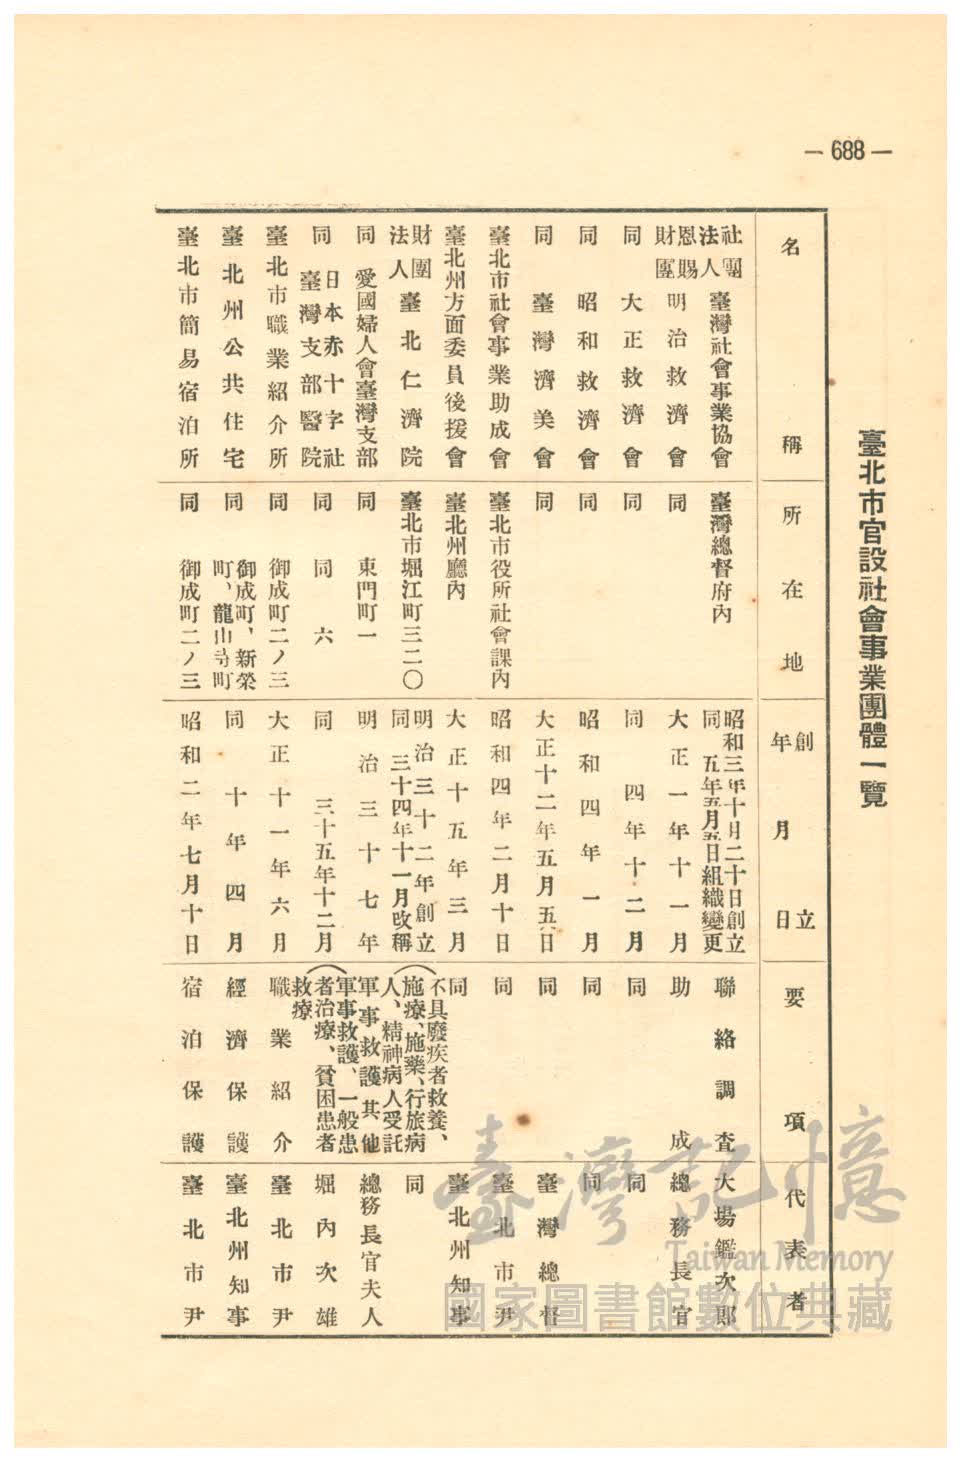 — 688 —
臺北市官設社會事業團體一覽
名稱 所在地 創立年月日 要項 代表者
社團法人 臺灣社會事業協會 臺灣總督府內 昭和三年十月二十日創立 同五年五月五日組織變更 聯絡調査 大場鑑次郎
恩賜財團 明治救濟會 同 大正一年十一月 助成 總務長官
同 大正救濟會 同 同四年十二月 同 同
同 昭和救濟會 同 昭和四年一月 同 同
同 臺灣濟美會 同 大正十二年五月五日 同 臺灣總督
臺北市社會事業助成會 臺北市役所社會課內 昭和四年二月十日 同 臺北市尹
臺北州方面委員後援會 臺北州廳內 大正十五年三月 同 臺北州知事
財團法人 臺北仁濟院 臺北市堀江町三二〇 明治三十二年創立 同三十四年十一月改稱 (不具廢疾者救養、施療、施藥、行旅病人、精神病人受託 同
同 愛國婦人會臺灣支部 同 東門町一 明治三十七年 軍事救護其他 總務長官夫人
同 日本赤十字社臺灣支部醫院 同 同 六 同 三十五年十二月 (軍事救護、一般患者治療、貧困患者救療 堀內次雄
臺北市職業紹介所 同 御成町二ノ三 大正十一年六月 職業紹介 臺北市尹
臺北州公共住宅 同 御成町、新榮町、龍山寺町 同 十年四月 經濟保護 臺北州知事
臺北市簡易宿泊所 同 御成町二ノ三 昭和二年七月十日 宿泊保護 臺北市尹
臺灣記憶
Taiwan Memory
國家圖書館數位典藏